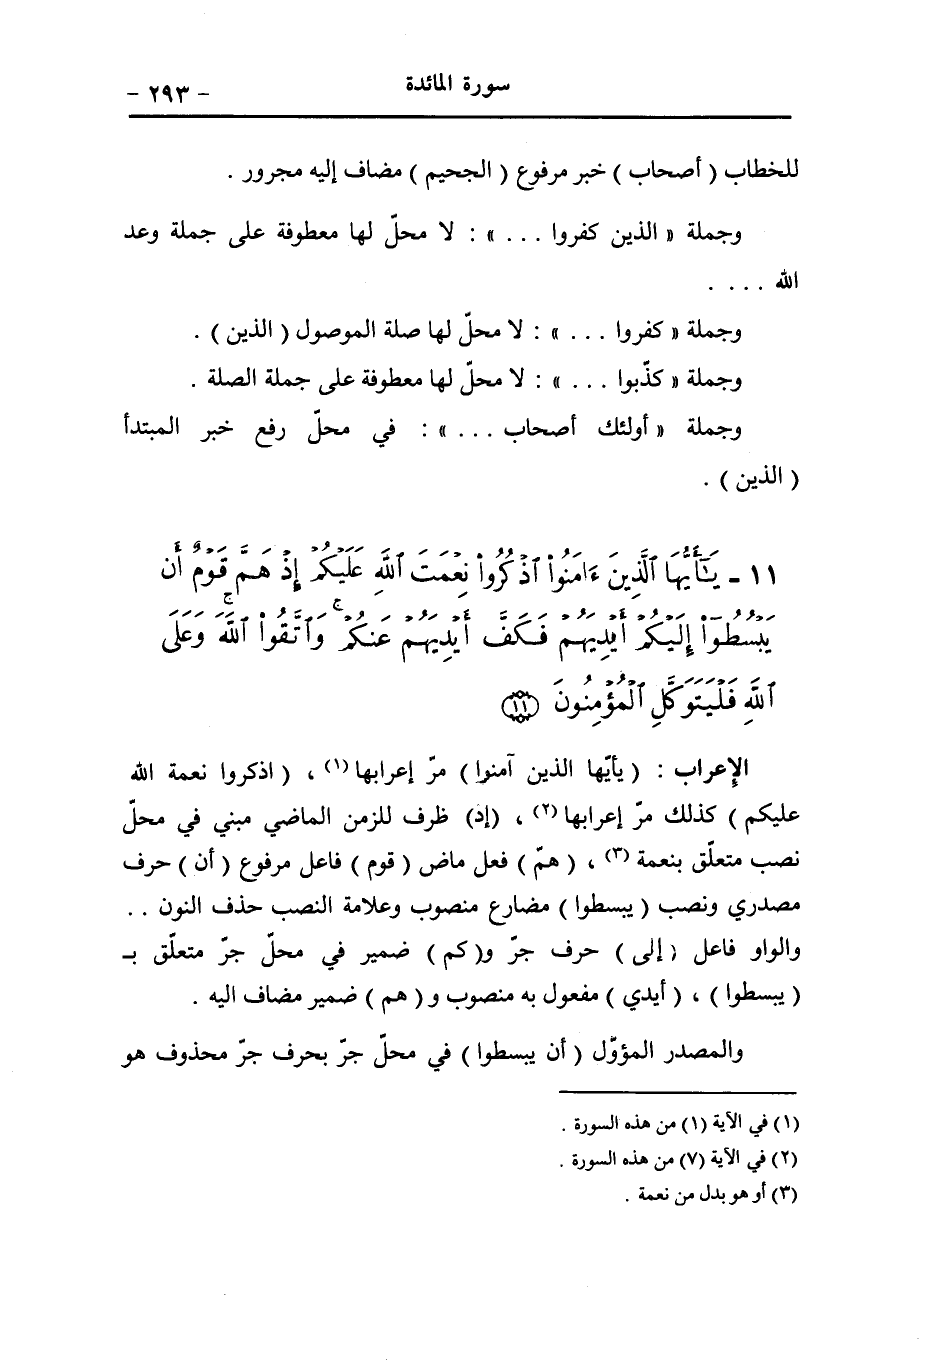 سورة المائدة
- ٢٩٣ -
للخطاب ( أصحاب ) خبر مرفوع ( الجحيم ) مضاف إليه مجرور .
وجملة « الذين كفروا . . . » : لا محلّ لها معطوفة على جملة وعد
الله . . . .
وجملة « كفروا . . . » : لا محلّ لها صلة الموصول ( الذين ) .
وجملة « كذّبوا . . . » : لا محلّ لها معطوفة على جملة الصلة .
وجملة « أولئك أصحاب . . . » : في محلّ رفع خبر المبتدأ
( الذين ) .
١١ - يَـٰٓأَيُّهَا ٱلَّذِينَ ءَامَنُوا۟ ٱذْكُرُوا۟ نِعْمَتَ ٱللَّهِ عَلَيْكُمْ إِذْ هَمَّ قَوْمٌ أَن
يَبْسُطُوٓا۟ إِلَيْكُمْ أَيْدِيَهُمْ فَكَفَّ أَيْدِيَهُمْ عَنكُمْ ۚ وَٱتَّقُوا۟ ٱللَّهَ ۚ وَعَلَى
ٱللَّهِ فَلْيَتَوَكَّلِ ٱلْمُؤْمِنُونَ ﴿١١﴾
الإعراب : ( يأيّها الذين آمنوا ) مرّ إعرابها (١) ، ( اذكروا نعمة الله
عليكم ) كذلك مرّ إعرابها (٢) ، (إذ) ظرف للزمن الماضي مبني في محلّ
نصب متعلّق بنعمة (٣) ، ( همّ ) فعل ماض ( قوم ) فاعل مرفوع ( أن ) حرف
مصدري ونصب ( يبسطوا ) مضارع منصوب وعلامة النصب حذف النون . .
والواو فاعل ( إلى ) حرف جرّ و( كم ) ضمير في محلّ جرّ متعلّق بـ
( يبسطوا ) ، ( أيدي ) مفعول به منصوب و ( هم ) ضمير مضاف اليه .
والمصدر المؤوّل ( أن يبسطوا ) في محلّ جرّ بحرف جرّ محذوف هو
(١) في الآية (١) من هذه السورة .
(٢) في الآية (٧) من هذه السورة .
(٣) أو هو بدل من نعمة .